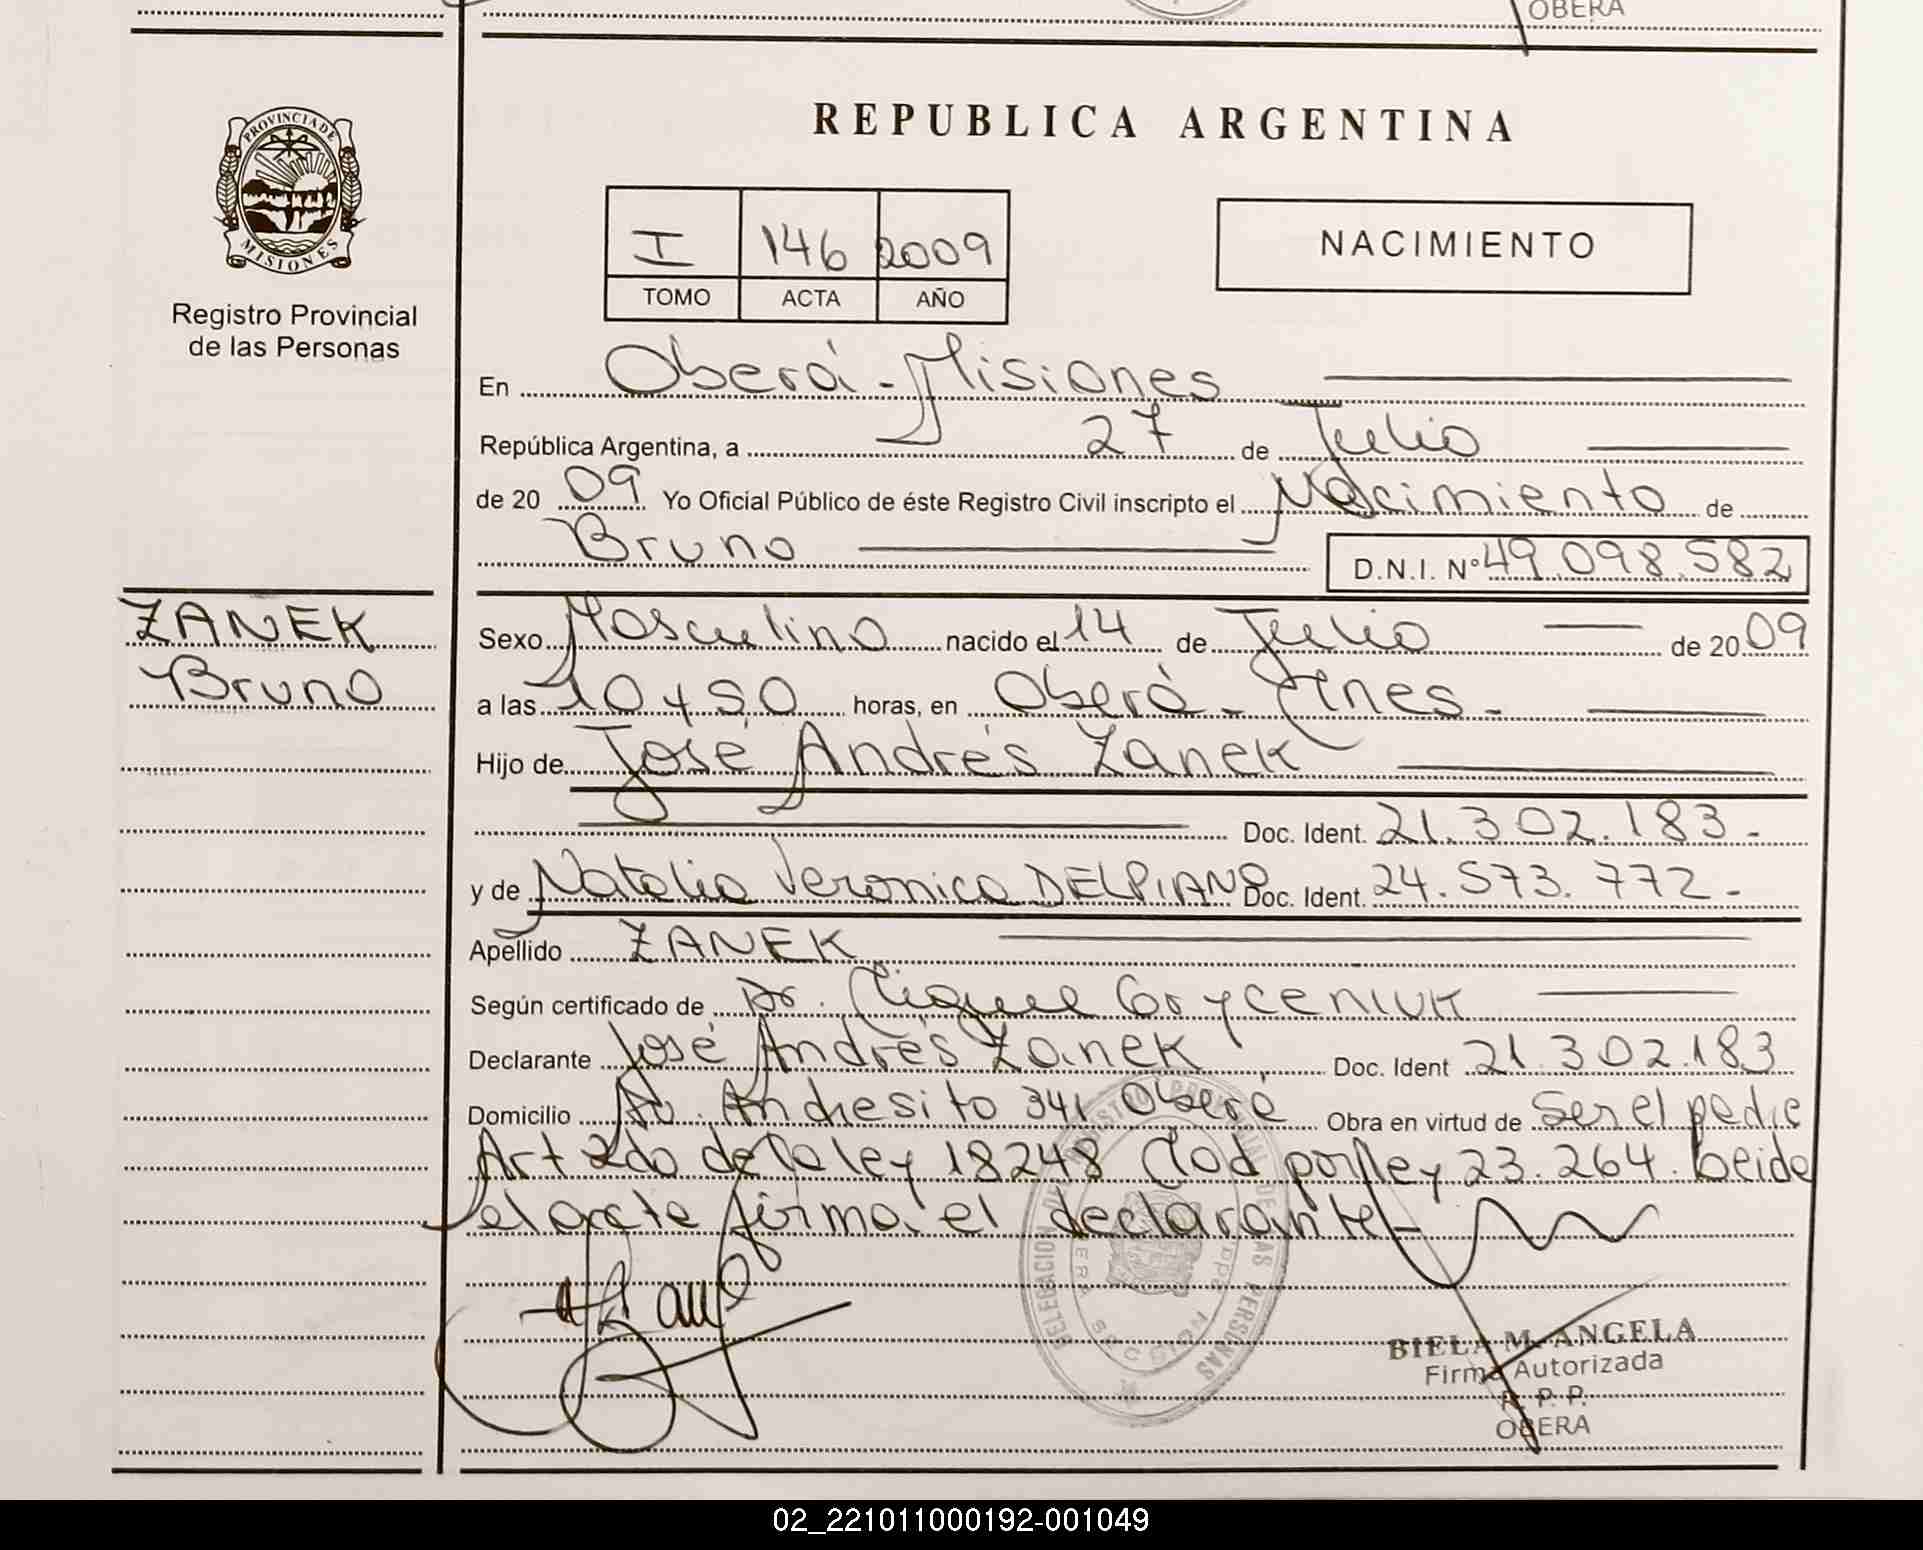 OBERA
PROVINCIA DE
MISIONES
Registro Provincial
de las Personas
REPUBLICA ARGENTINA
I 146 2009
TOMO ACTA AÑO
NACIMIENTO
En Oberá - Misiones
República Argentina, a 27 de Julio
de 20 09 Yo Oficial Público de éste Registro Civil inscripto el Nacimiento de
Bruno D.N.I. Nº 49.098.582
ZANEK
Bruno
Sexo Masculino nacido el 14 de Julio de 20 09
a las 10 y 50 horas, en Oberá - Mnes.
Hijo de José Andrés Zanek
Doc. Ident. 21.302.183.-
y de Natalia Veronica DELPIANO Doc. Ident. 24.573.772.-
Apellido ZANEK
Según certificado de Dr. Miguel Gryceniuk
Declarante José Andrés Zanek Doc. Ident 21.302.183
Domicilio Av. Andresito 341 Oberá Obra en virtud de Ser el padre
Art 2do de la ley 18248 Mod por ley 23.264. Leida
el acta firma el declarante-
DELEGACION DEL REGISTRO PROVINCIAL DE LAS PERSONAS
BIELA M. ANGELA
Firma Autorizada
R. P. P.
OBERA
02_221011000192-001049